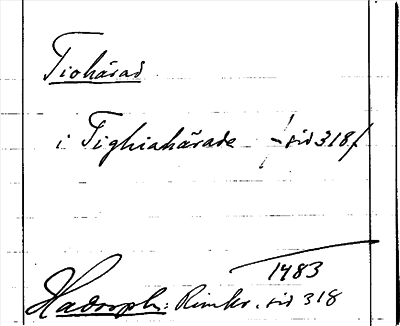 Tiohärad
i Tighiahärade /-sid 318/
1483
Hadorph: Rimkr. sid 318